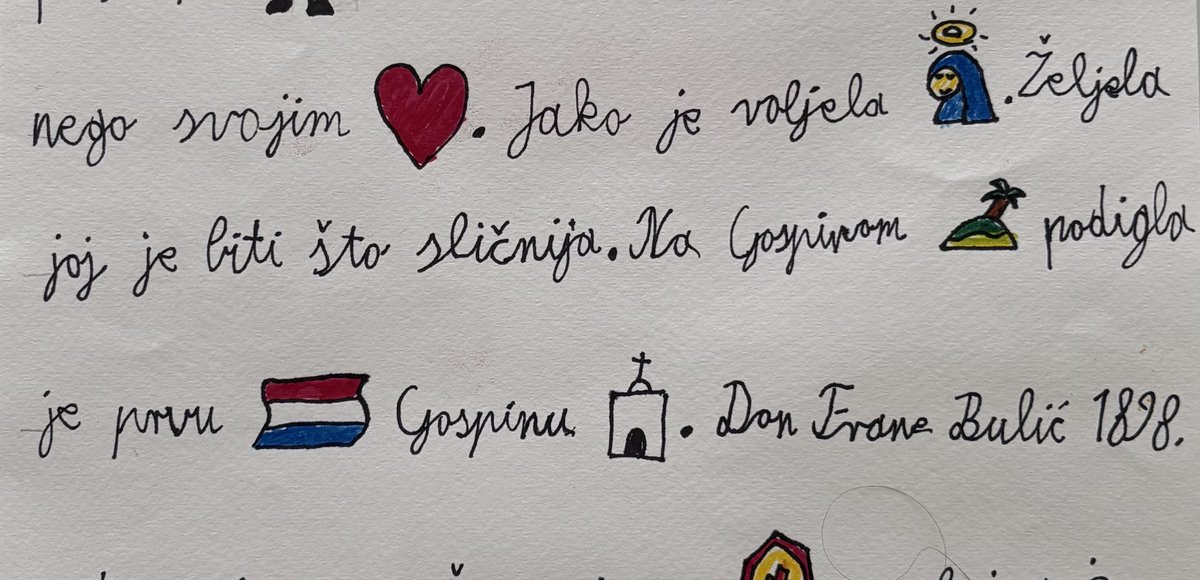 nego svojim . Jako je voljela . Željela
joj je biti što sličnija. Na Gospinom podigla
je prvu Gospinu . Don Frane Bulić 1898.